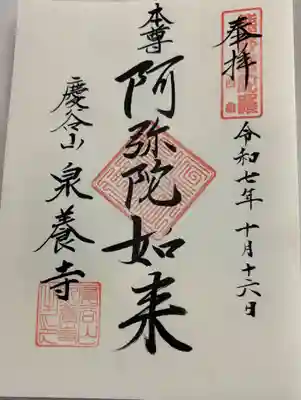 奉拝
令和七年十月十六日
本尊
阿弥陀如来
慶令山
泉養寺